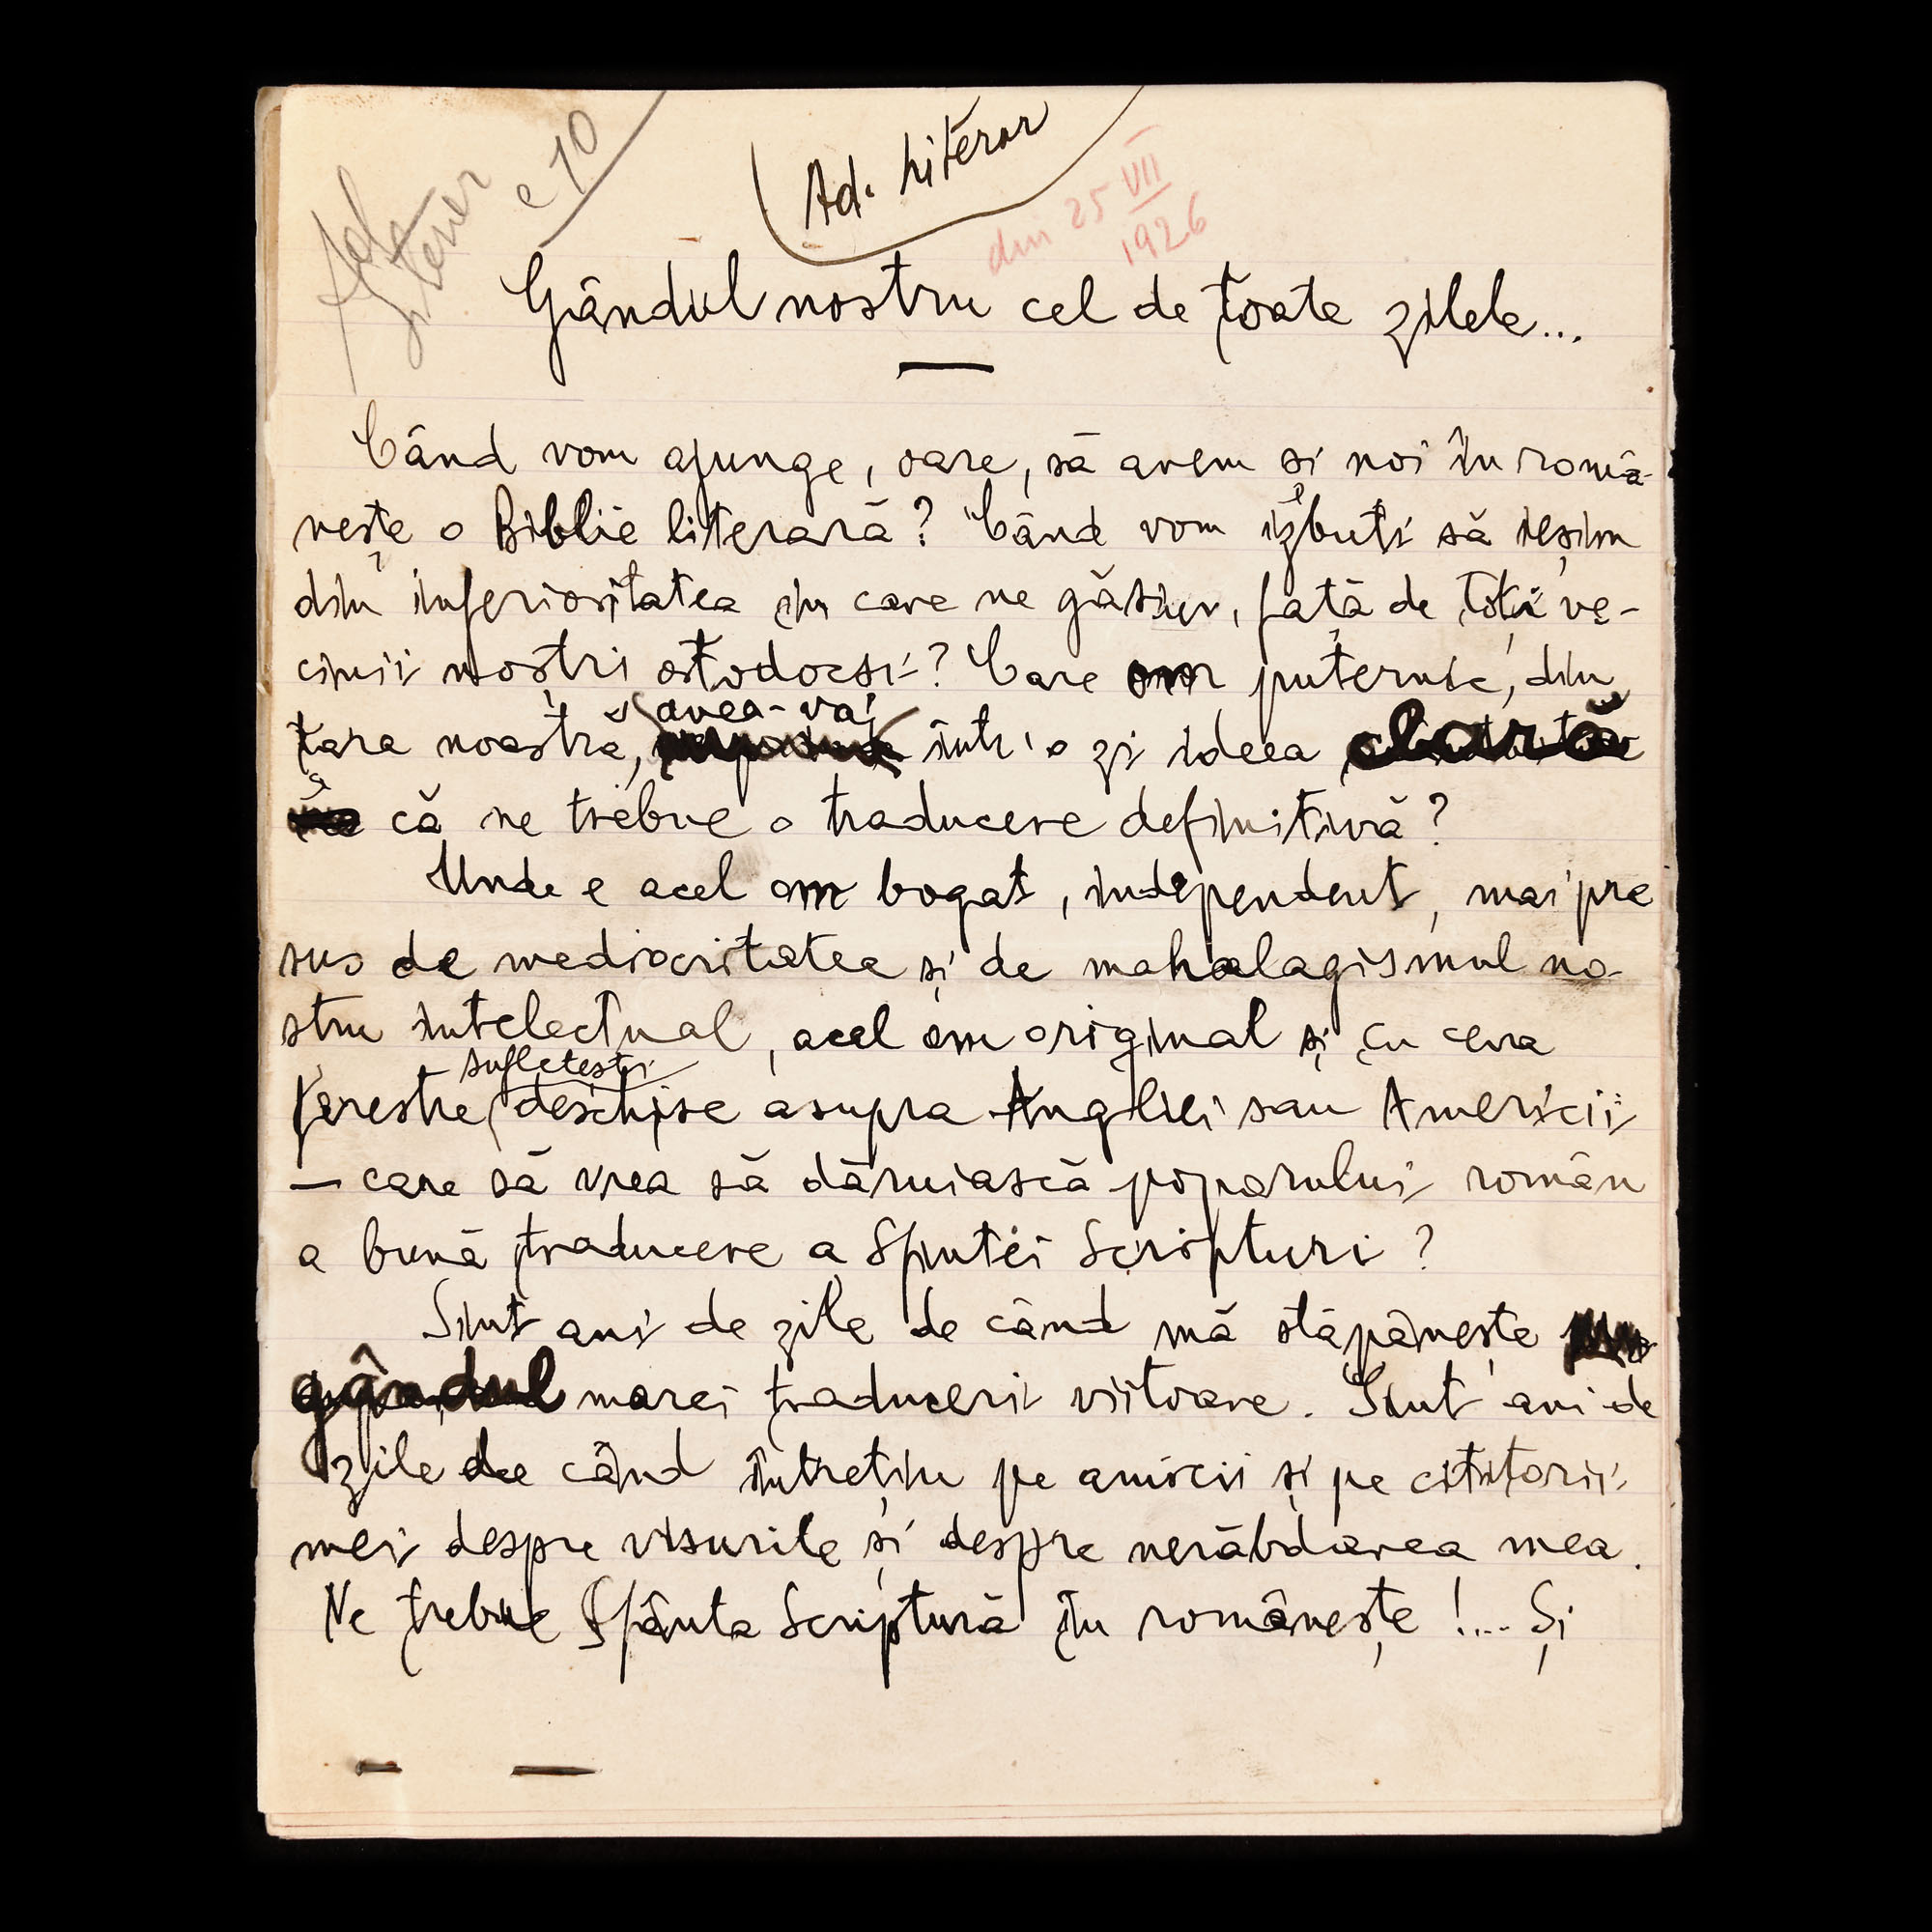 Ad. literar
c 10
Ad. Literar
din 25 VII 1926
Gândul nostru cel de toate zilele...
Când vom ajunge, oare, să avem și noi în româ-
nește o Biblie literară? Când vom izbuti să ieșim
din inferioritatea în care ne găsim, față de toți ve-
cinii noștri ortodocși? Care om puternic, din
avea-va
țara noastră, într'o zi ideea clară
că ne trebue o traducere definitivă?
Unde e acel om bogat, independent, mai pre
sus de mediocritatea și de mahalagismul no-
stru intelectual, acel om original și cu ceva
sufletești
ferestre deschise asupra Angliei sau Americii
— care să vrea să dăruiască poporului român
o bună traducere a Sfintei Scripturi?
Sînt ani de zile de când mă stăpânește
gândul marei traduceri viitoare. Sînt ani de
zile de când întrețin pe amicii și pe cititorii
mei despre visurile și despre nerăbdarea mea.
Ne trebue Sfânta Scriptură în românește!... Și